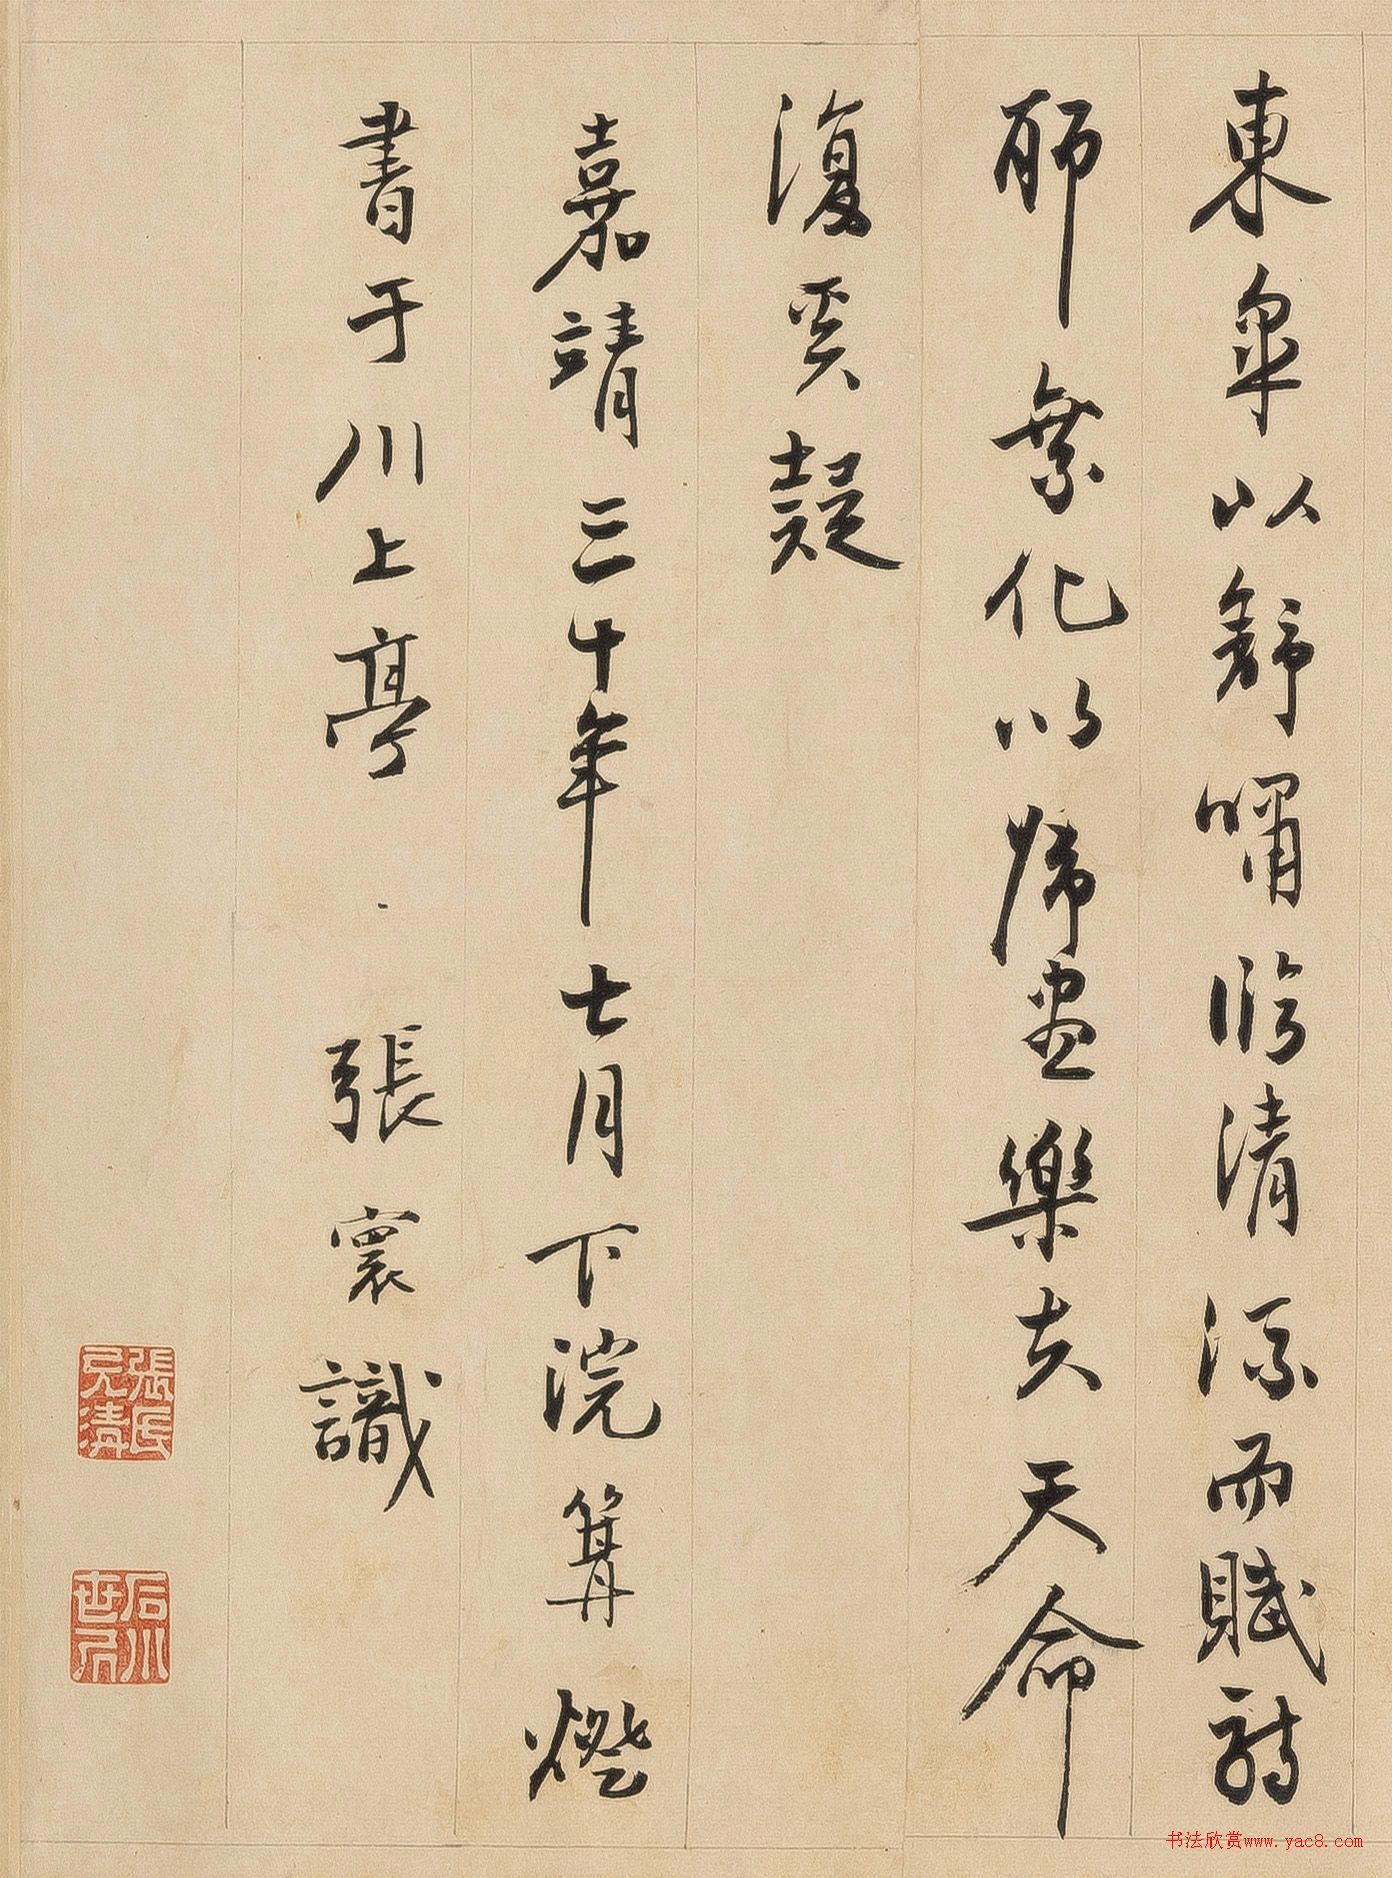 東皐以舒嘯臨清流而賦詩
聊乘化以歸盡樂夫天命
復奚疑
嘉靖三十年七月下浣篝燈
書于川上亭 張寰識
張氏
允清
石川
書法欣赏www.yac8.com